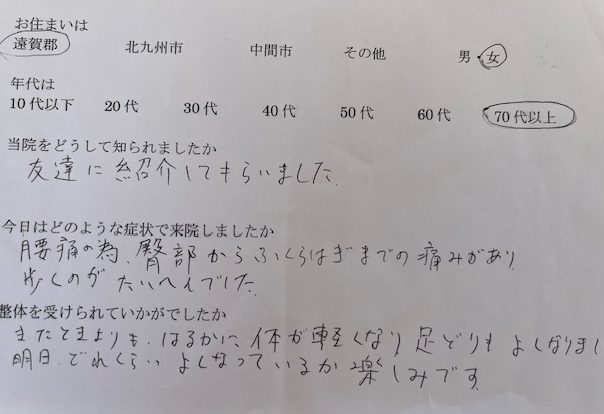 お住まいは
遠賀郡 北九州市 中間市 その他 男・女
年代は
10代以下 20代 30代 40代 50代 60代 70代以上
当院をどうして知られましたか
友達に紹介してもらいました.
今日はどのような症状で来院しましたか
腰痛の為、臀部からふくらはぎまでの痛みがあり
歩くのがたいへんでした.
整体を受けられていかがでしたか
きたときよりも、はるかに、体が軽くなり足どりもよしくなりまし
明日、どれくらいよくなっているか楽しみです